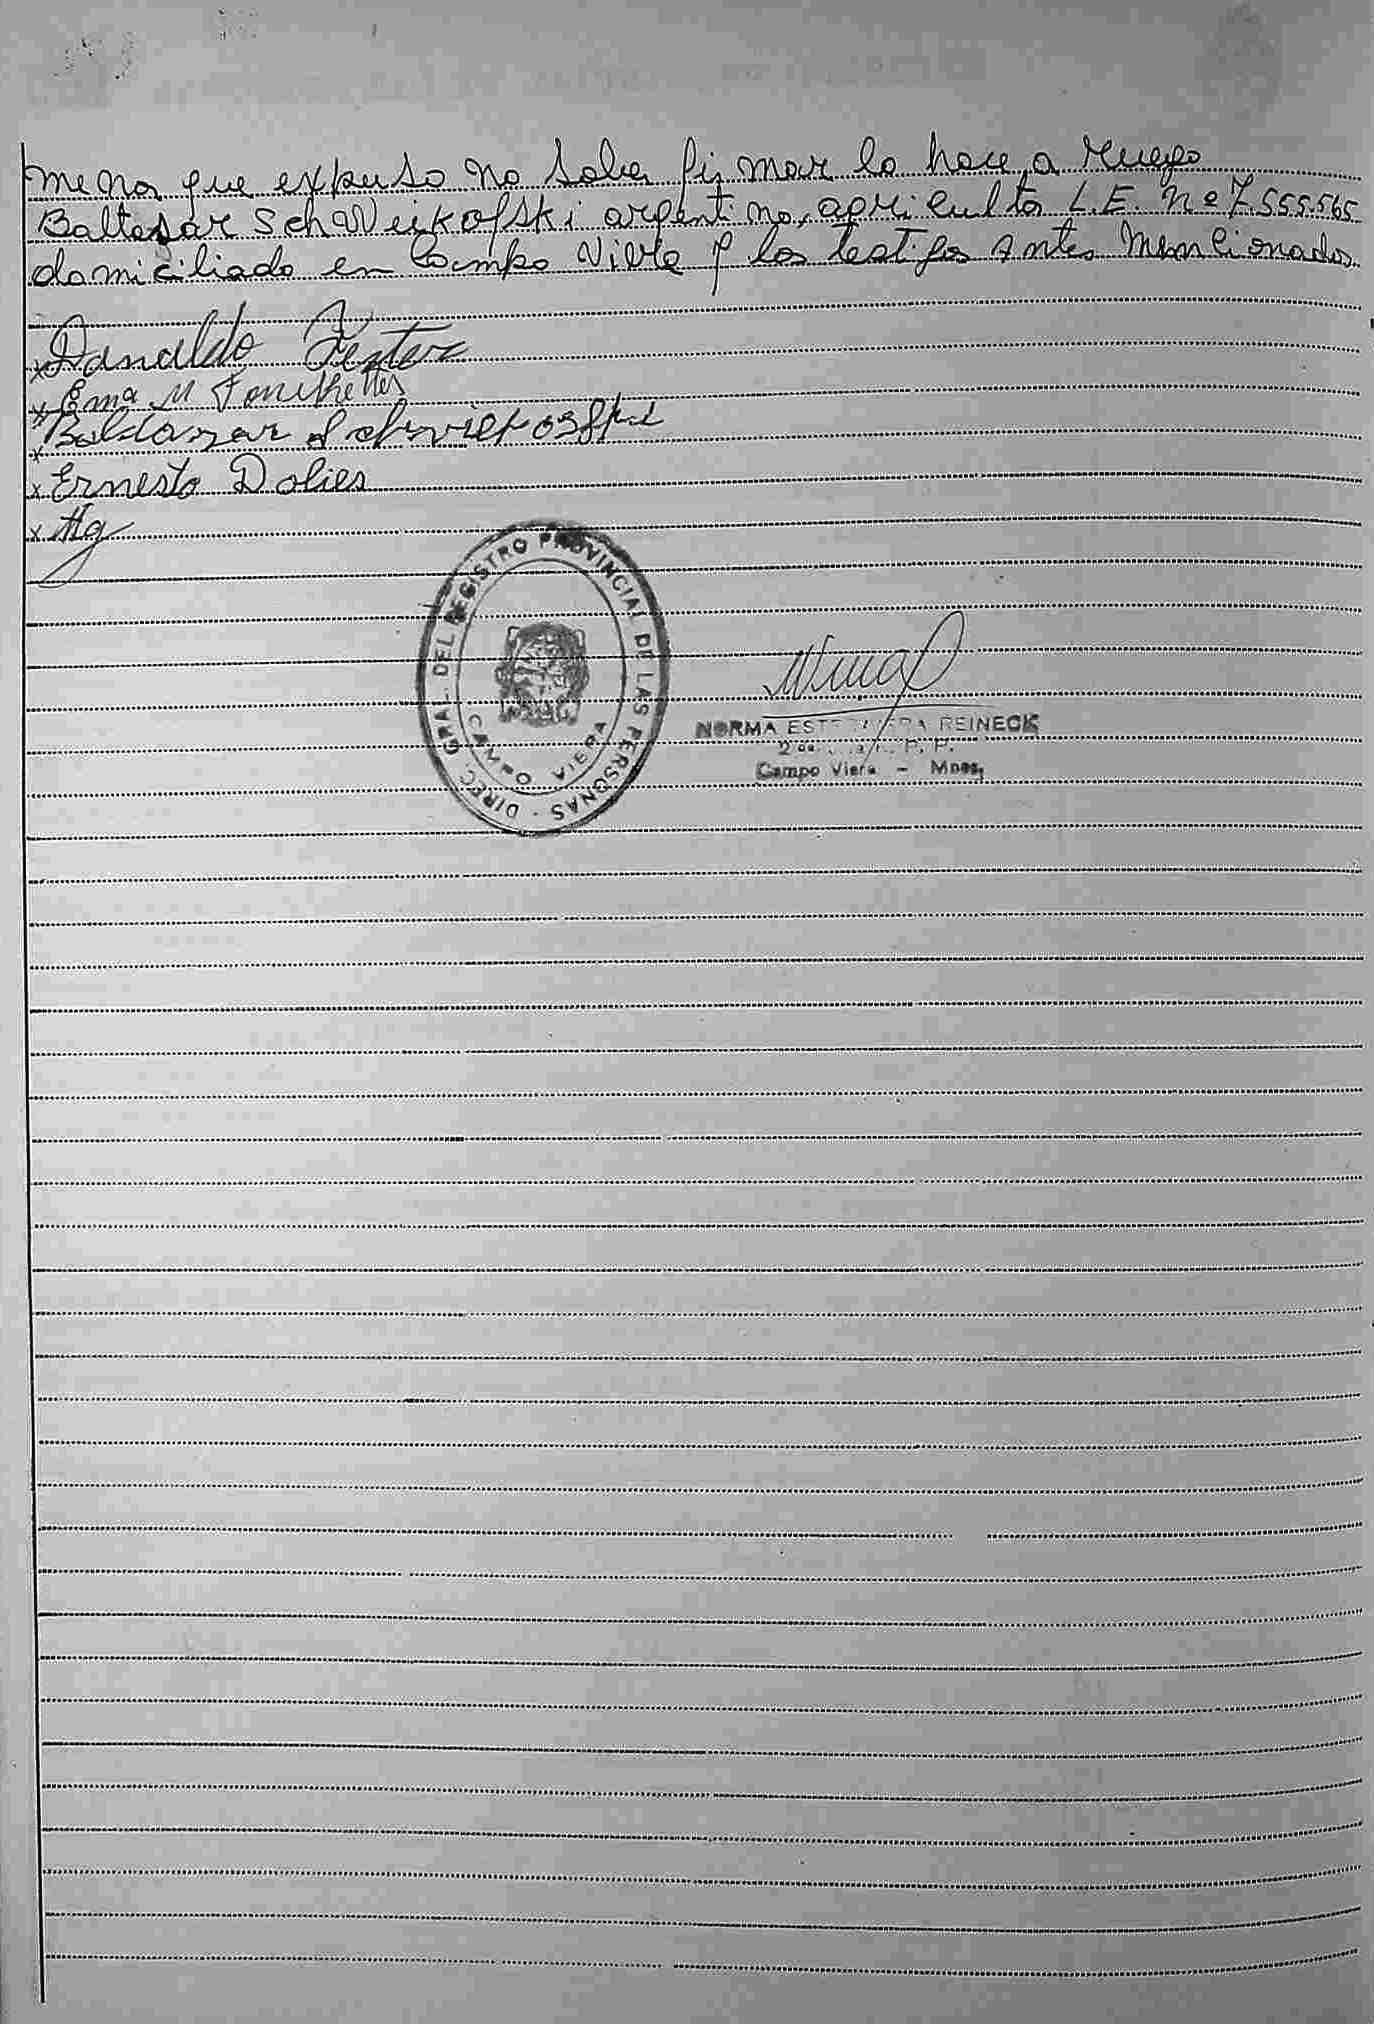 menor que expuso no saber firmar lo hace a ruego
Baltesar SchWeikofski argentino, agricultor L.E. Nº 7.555.565
domiciliado en Campo Viera y los testigos antes mencionados.
x Danaldo
x Ema M
x Baldazar Schviekosfski
x Ernesto Dolies
x Hg
DIREC. GRAL. DEL REGISTRO PROVINCIAL DE LAS PERSONAS -
CAMPO VIERA
NORMA REINECK
Campo Viera - Mnes.